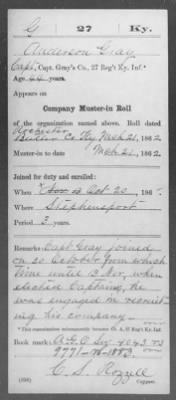 G 27 Ky.
Anderson Gray
Capt., Capt. Gray's Co., 27 Reg't Ky. Inf.*
Age 44 years.
Appears on
Company Muster-in Roll
of the organization named above. Roll dated
Rochester
Butler Co Ky Mch 21, 1862
Muster-in to date Mch 21, 1862
Joined for duty and enrolled:
When Oct 20, 186
Where Stephensport
Period 3 years.
Remarks: Capt Gray joined
on 20 October from which
time until 13 Nov, when
elected Captain, he
was engaged in recruit
ing his company
*This organization subsequently became Co. G, 27 Reg't Ky. Inf.
Book mark: A.G.O.
9771-
C. S. Rozzell
(356) Copyist.